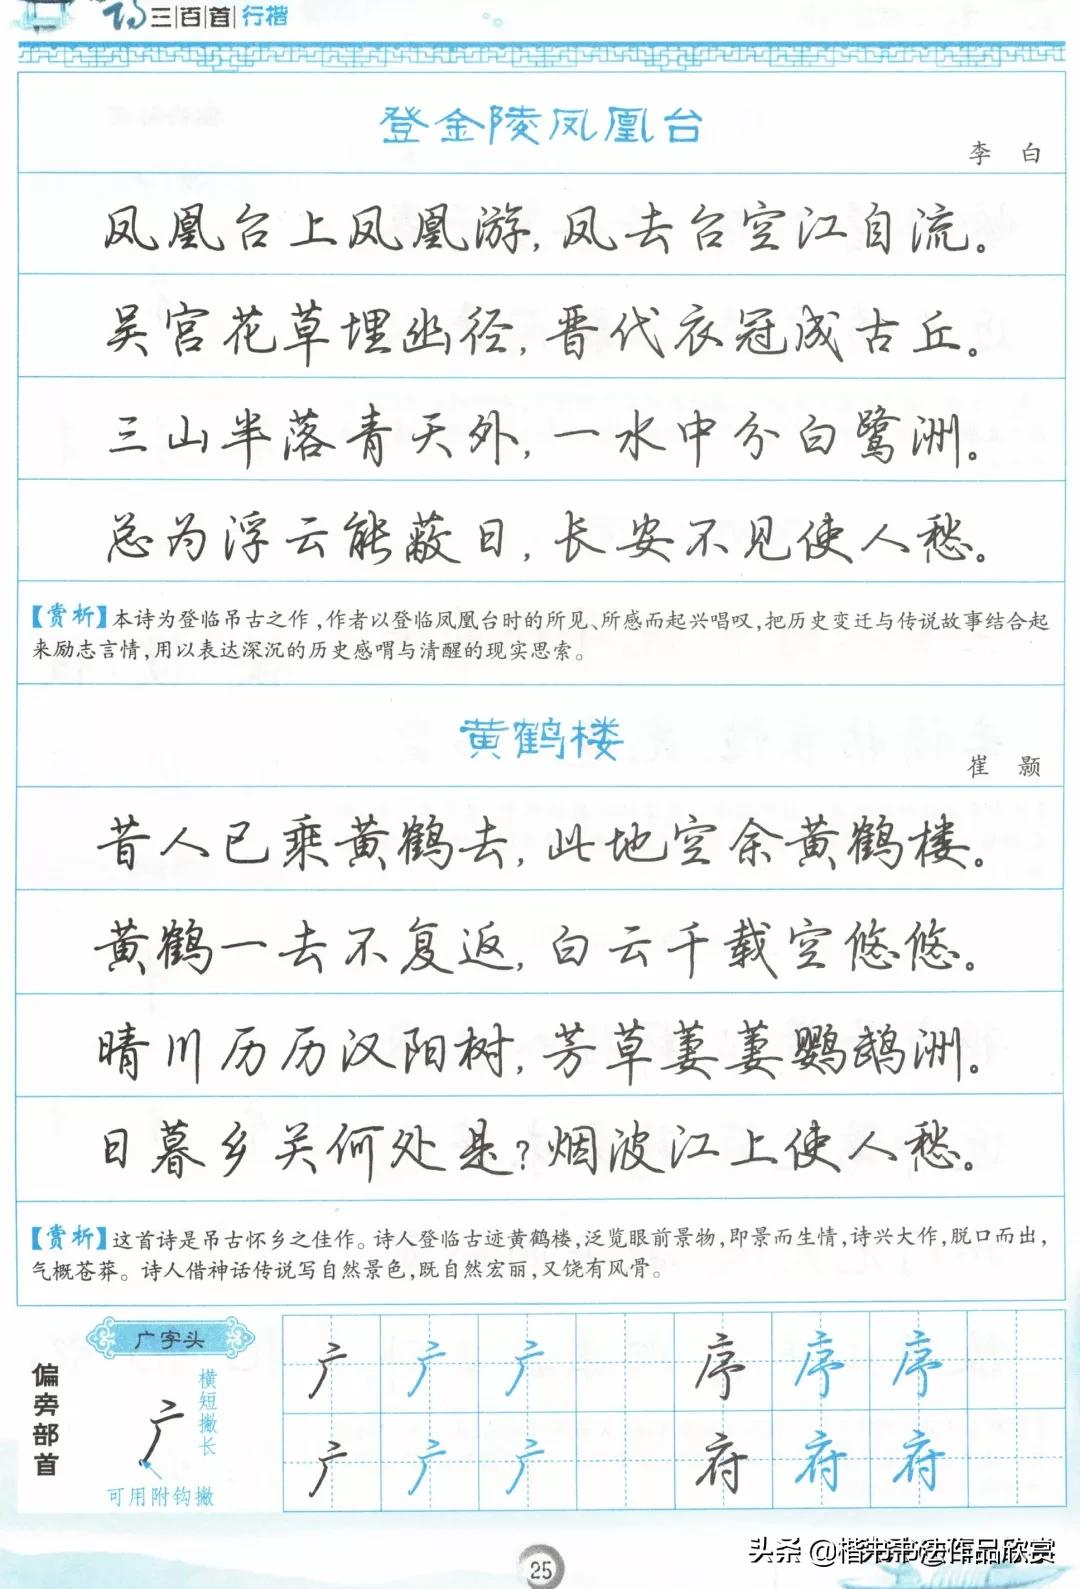 诗三百首 行楷
登金陵凤凰台
李白
凤凰台上凤凰游，凤去台空江自流。
吴宫花草埋幽径，晋代衣冠成古丘。
三山半落青天外，一水中分白鹭洲。
总为浮云能蔽日，长安不见使人愁。
【赏析】本诗为登临吊古之作，作者以登临凤凰台时的所见、所感而起兴唱叹，把历史变迁与传说故事结合起
来励志言情，用以表达深沉的历史感喟与清醒的现实思索。
黄鹤楼
崔颢
昔人已乘黄鹤去，此地空余黄鹤楼。
黄鹤一去不复返，白云千载空悠悠。
晴川历历汉阳树，芳草萋萋鹦鹉洲。
日暮乡关何处是？烟波江上使人愁。
【赏析】这首诗是吊古怀乡之佳作。诗人登临古迹黄鹤楼，泛览眼前景物，即景而生情，诗兴大作，脱口而出，
气概苍莽。诗人借神话传说写自然景色，既自然宏丽，又饶有风骨。
偏旁部首
广字头
广
横短撇长
可用附钩撇
广 广 广 序 序 序
广 广 广 府 府 府
25
头条 @楷书书法作品欣赏